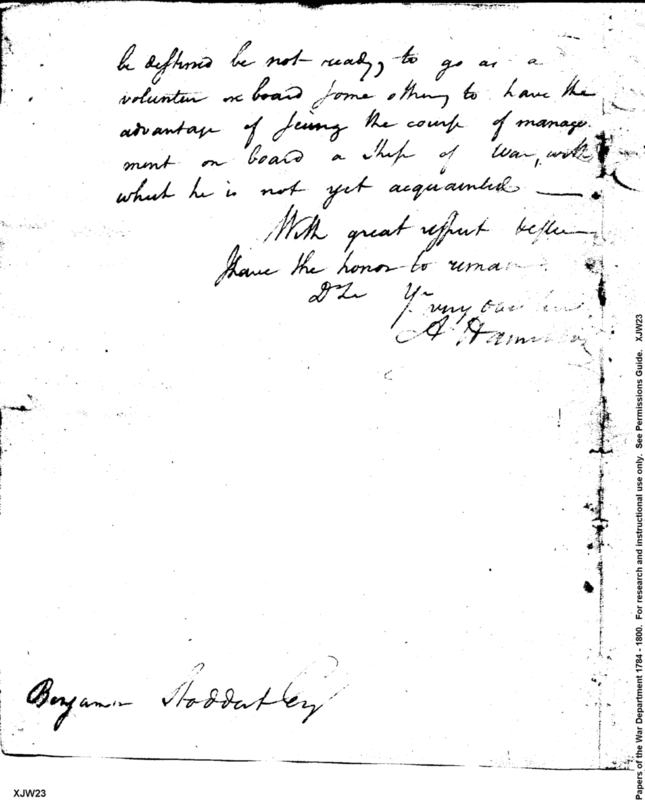 be destined be not ready, to go as a
volunteer on board some other, to have the
advantage of seeing the course of manage
ment on board a Ship of War, with
which he is not yet acquainted
With great respect & esteem
I have the honor to remain
Dr Sir Yr very
A Hamilton
Benjamin Stoddert Esq
XJW23
Papers of the War Department 1784 - 1800. For research and instructional use only. See Permissions Guide. XJW23